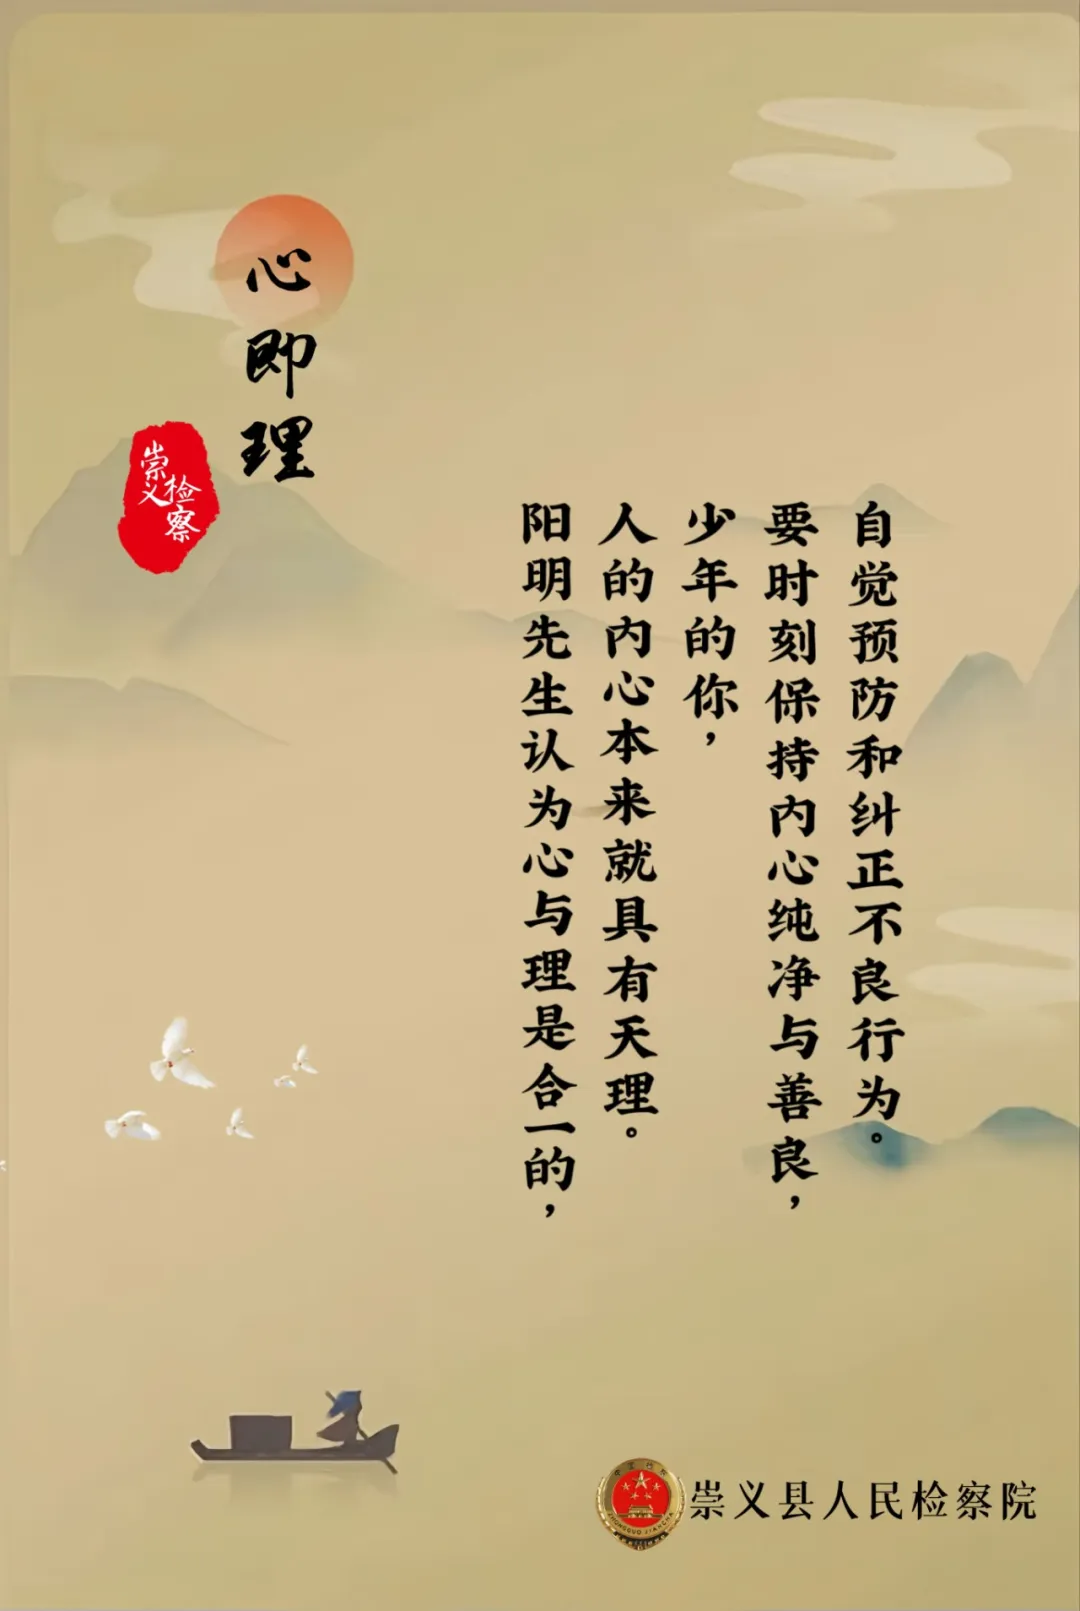 心即理
崇义
检察
阳明先生认为心与理是合一的，
人的内心本来就具有天理。
少年的你，
要时刻保持内心纯净与善良，
自觉预防和纠正不良行为。
崇义县人民检察院